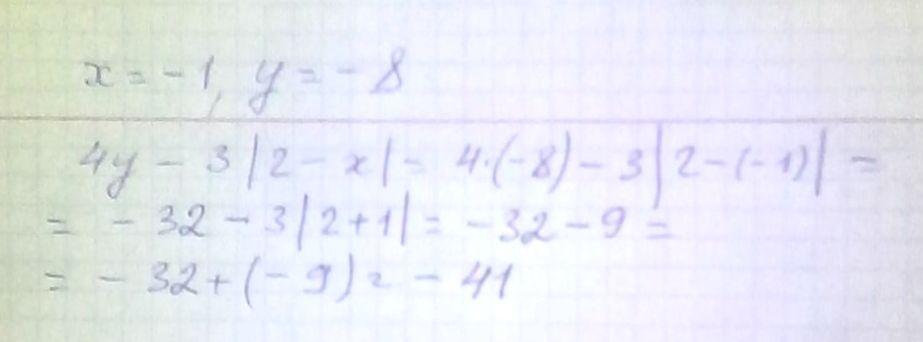 x = -1, y = -8
4y - 3|2 - x| = 4·(-8) - 3|2-(-1)| =
= -32 - 3|2+1| = -32 - 9 =
= -32 + (-9) = -41